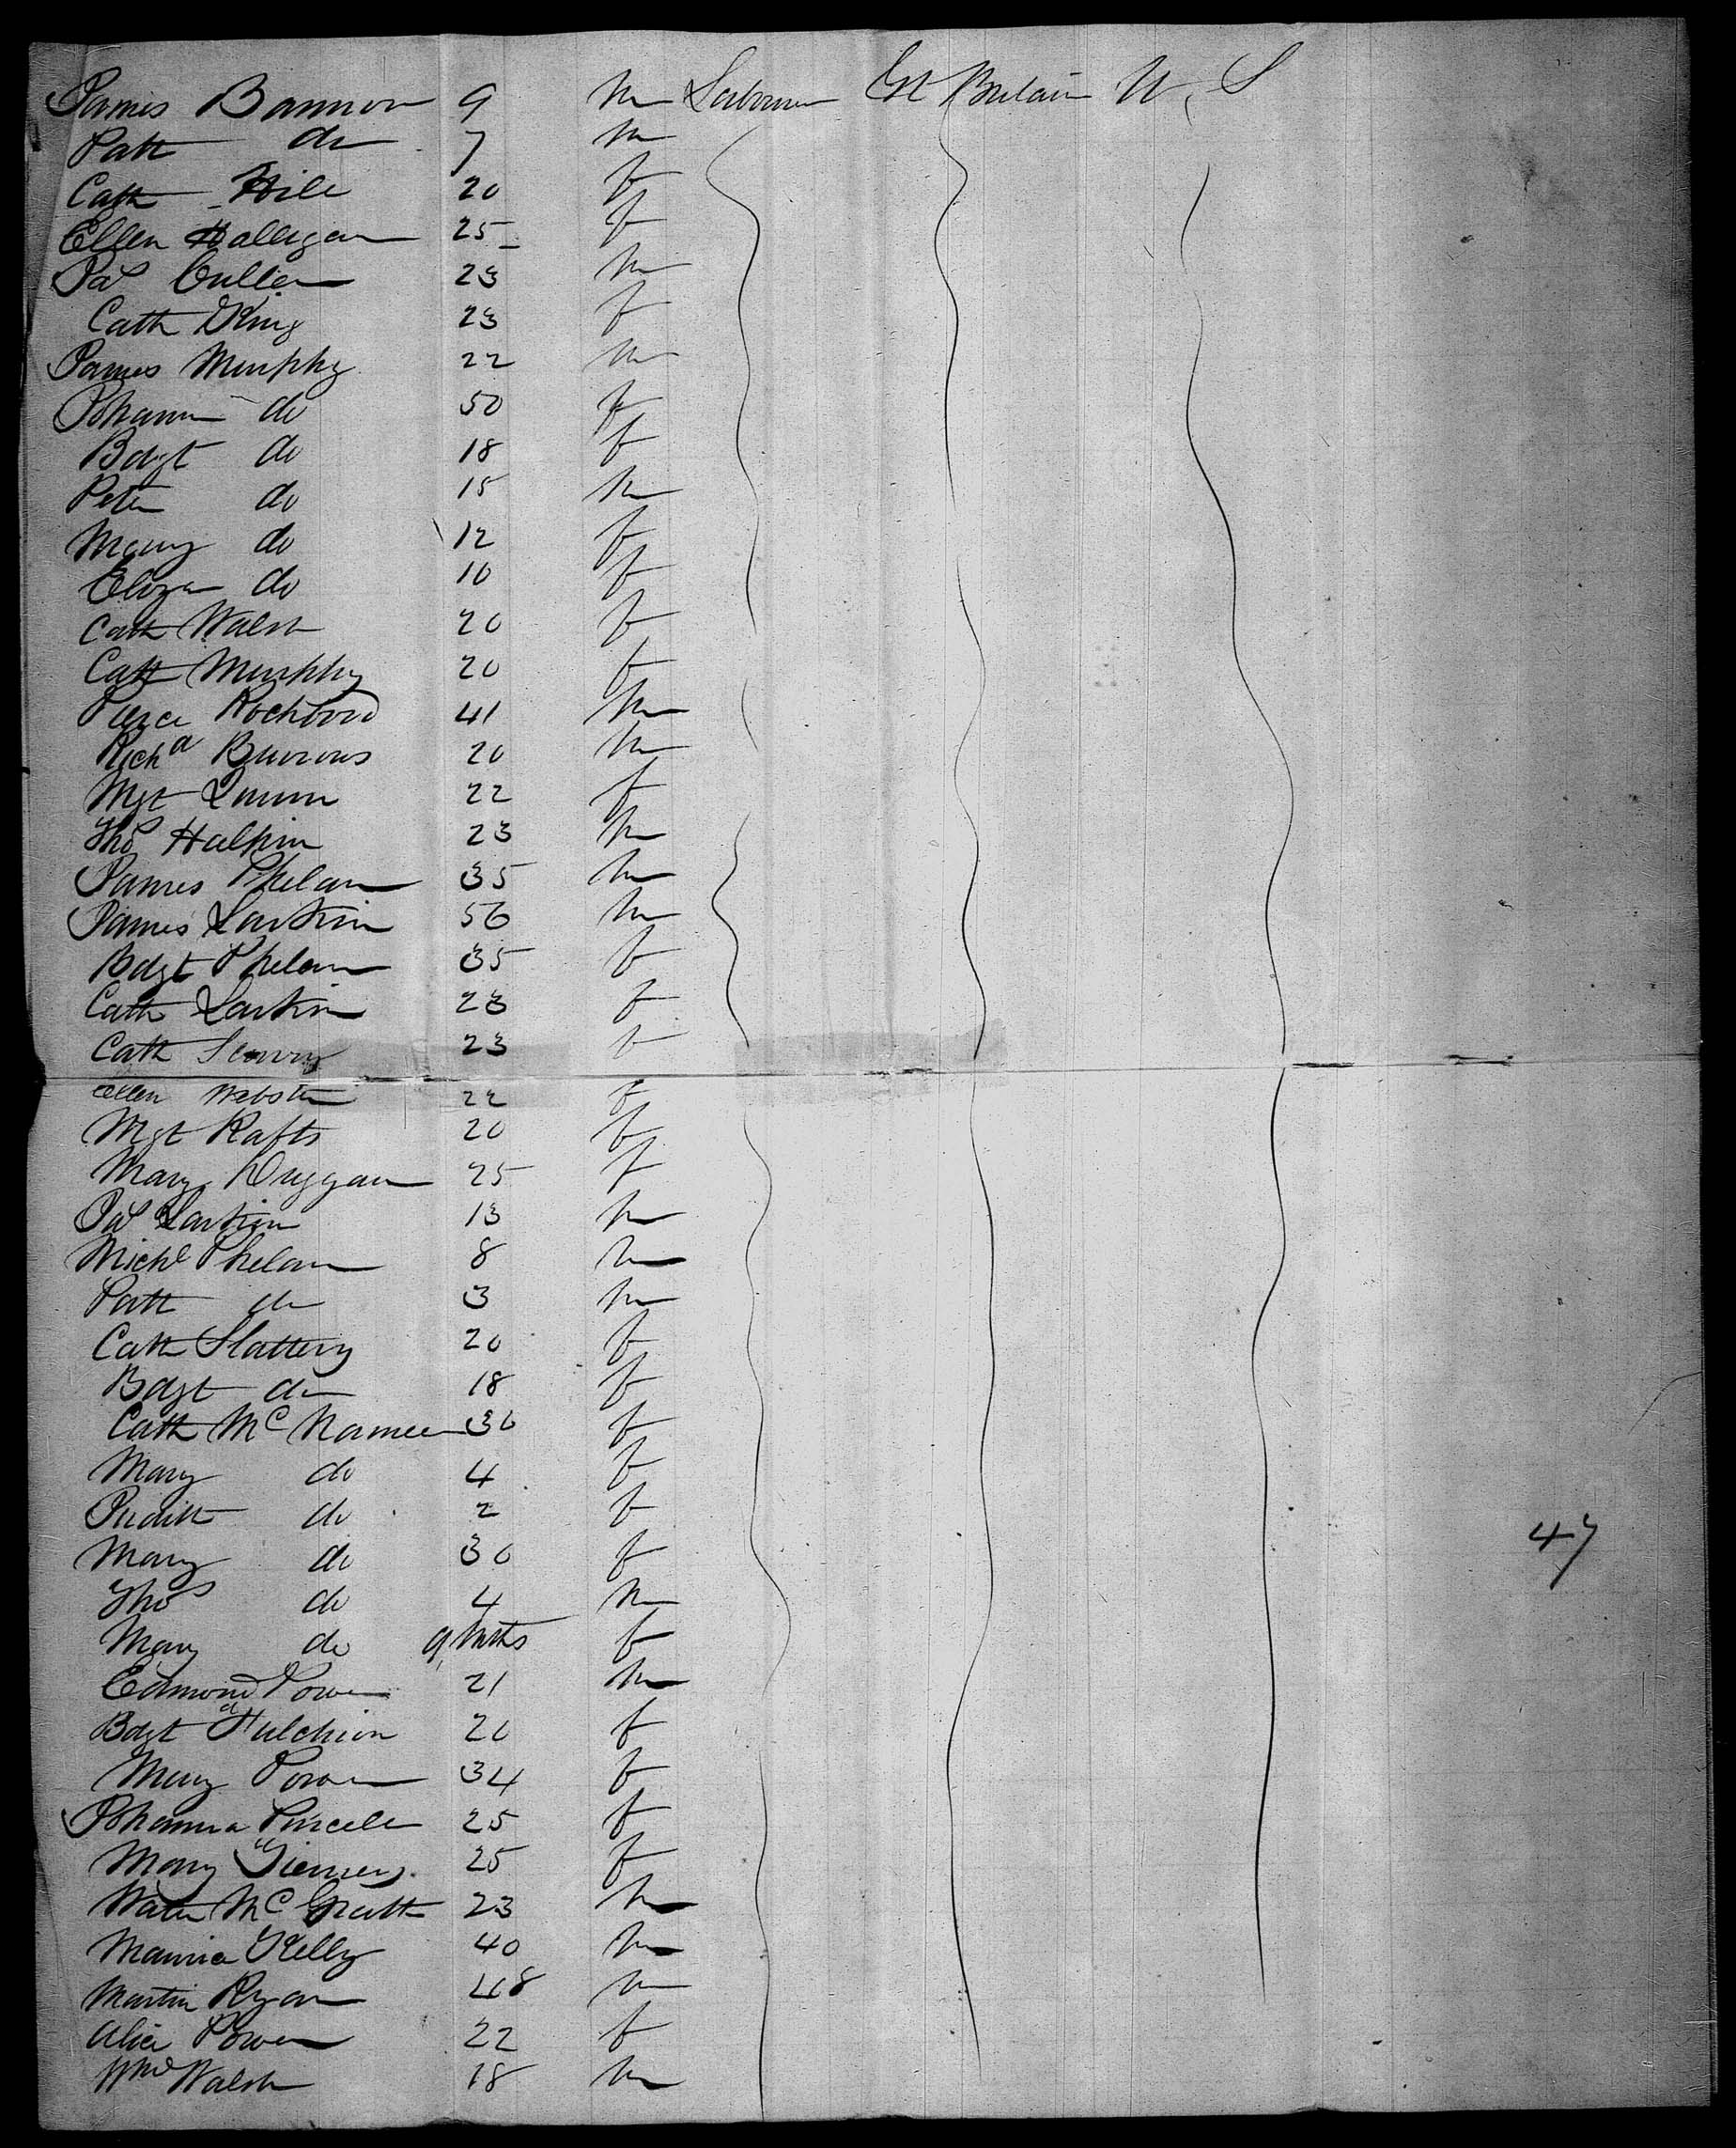 James Bannon 9 m Labourer Gt Britain U, S
Patk do 7 m
Cath Hill 20 f
Ellen Halligan 25 f
Pat Cullen 23 m
Cath King 23 f
James Murphy 22 m
Johanna do 50 f
Bdgt do 18 f
Peter do 15 m
Mary do 12 f
Eliza do 10 f
Cath Walsh 20 f
Cath Murphy 20 f
Pierce Rochford 41 m
Richd Burrows 20 m
Mgt 22 f
Thos Halpin 23 m
James Phelan 35 m
James Larkin 56 m
Bdgt Phelan 35 f
Cath Larkin 23 f
Cath 23 f
Ellen Webster 22 f
Mgt Rafts 20 f
Mary Duggan 25 f
Pat Larkin 13 m
Michl Phelan 8 m
Patk do 3 m
Cath Slattery 20 f
Bdgt do 18 f
Cath McNamee 30 f
Mary do 4 f
Judith do 2 f
Mary do 30 f
Thos do 4 m
Mary do 9 Mths f
47
Edmond Power 21 m
Bdgt 20 f
Mary Power 34 f
Johanna Purcell 25 f
Mary Tierney 25 f
Walter McGrath 23 m
Maurice Kelly 40 m
Martin Ryan 48 m
Alice Power 22 f
Wm Walsh 18 m